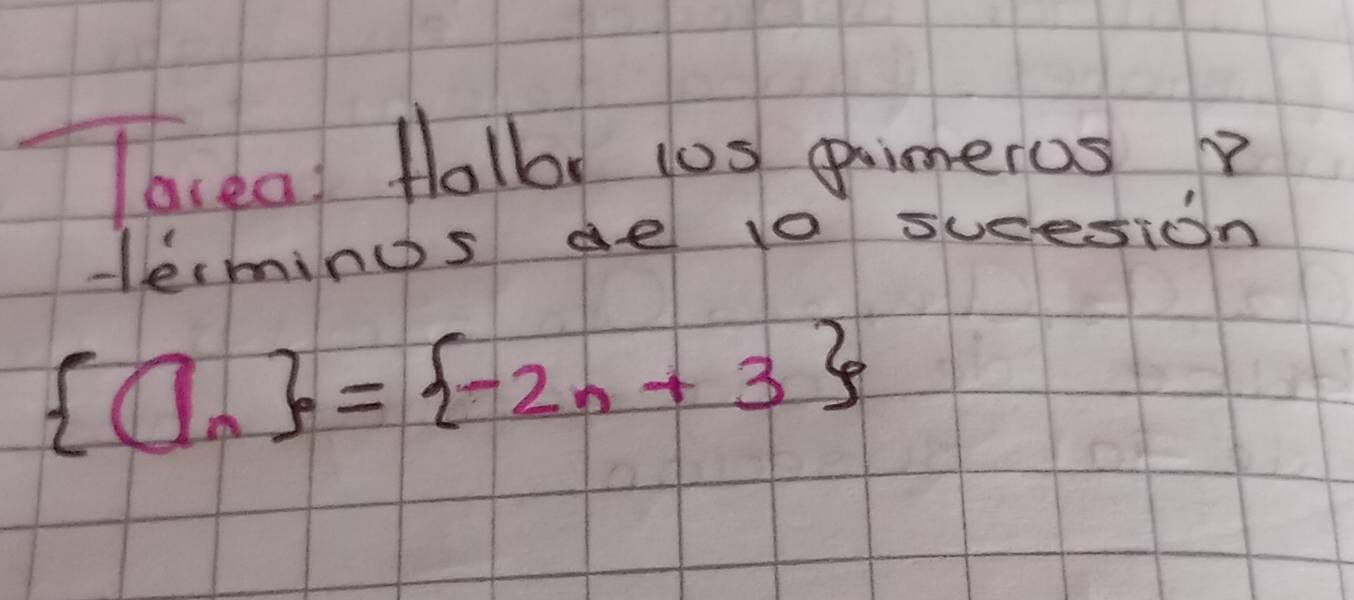 Tarea: Hallar los primeros 8
términos de la sucesión
{an} = {-2n + 3}